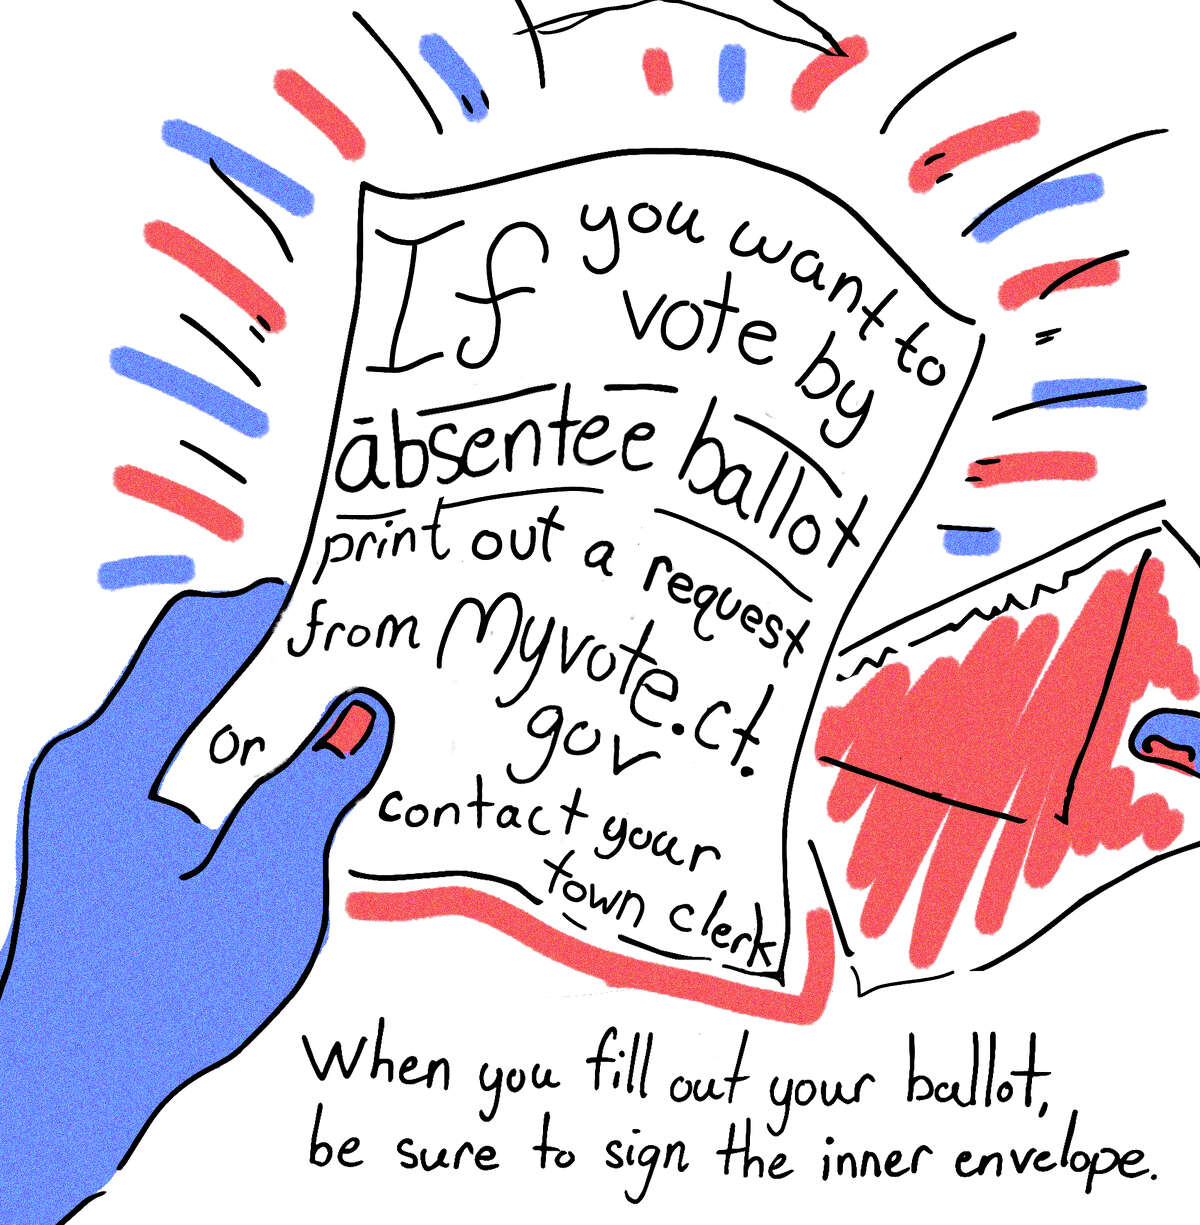 If you want to
vote by
absentee ballot
print out a request
from Myvote.ct.
gov
or
contact your
town clerk
When you fill out your ballot,
be sure to sign the inner envelope.